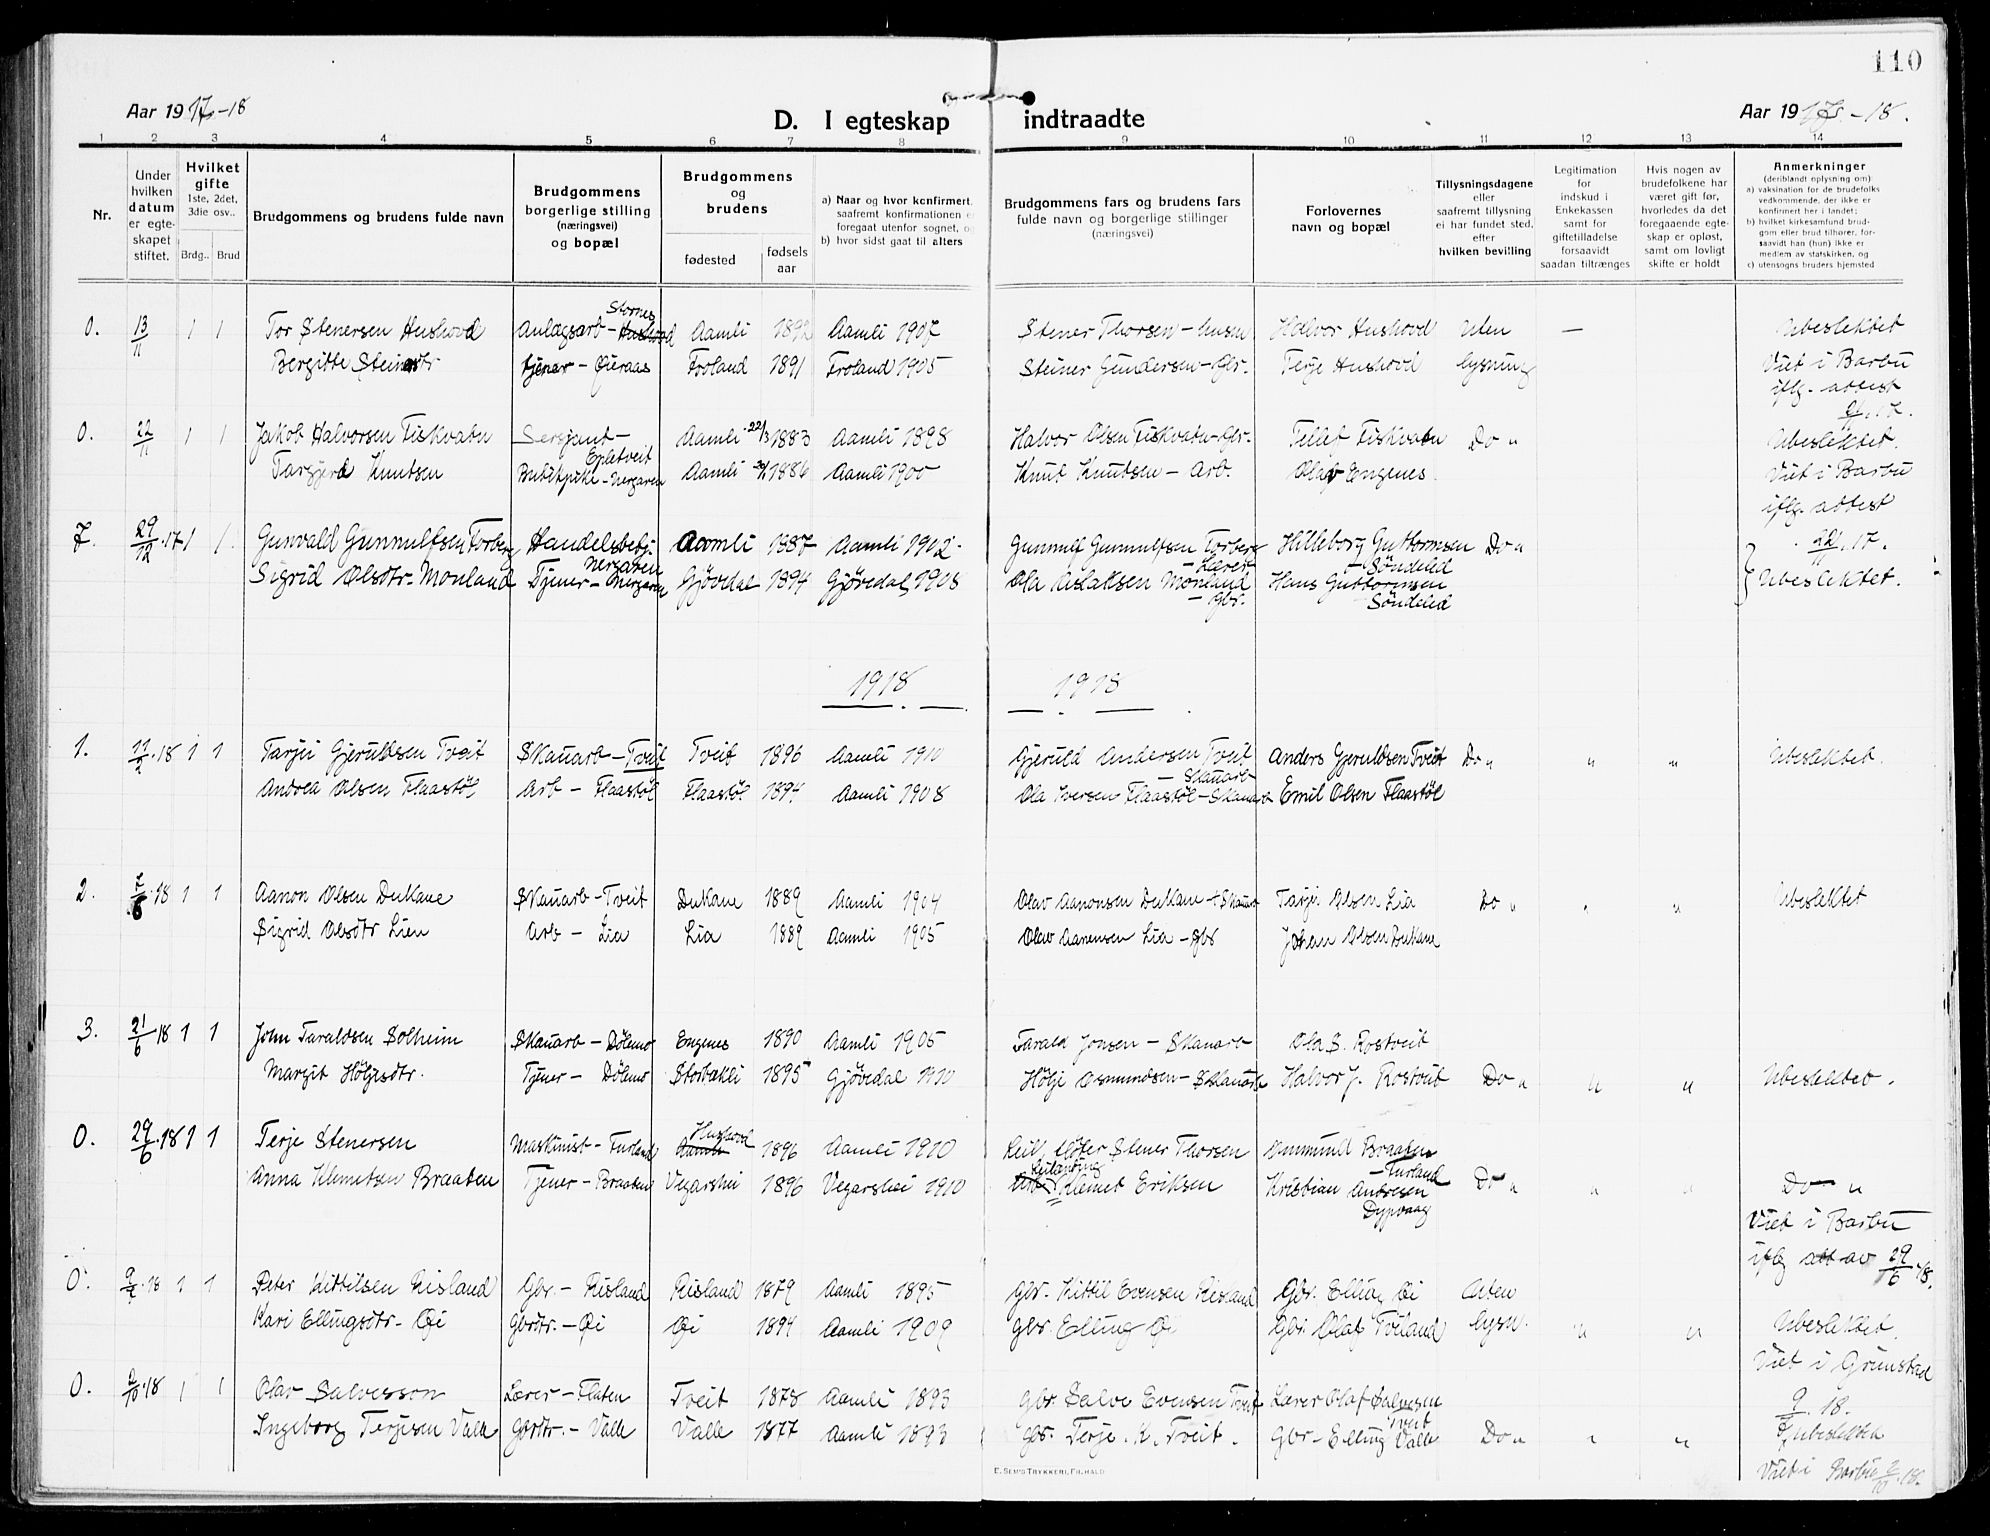 110
Aar 1917-18
D. I egteskap indtraadte
Aar 1917-18.
1 2 3 4 5 6 7 8 9 10 11 12 13 14
Nr.
Under hvilken datum er egteskapet stiftet.
Hvilket gifte 1ste, 2det, 3die osv..
Brdg.. Brud
Brudgommens og brudens fulde navn
Brudgommens borgerlige stilling (næringsvei) og bopæl
Brudgommens og brudens
fødested
fødsels aar
a) Naar og hvor konfirmert,
saafremt konfirmationen
foregaat utenfor sognet,
b) hvor sidst gaat til alters
Brudgommens fars og brudens fars
fulde navn og borgerlige stillinger
(næringsvei)
Forlovernes
navn og bopæl
Tillysningsdagene
eller
saafremt tillysning
ei har fundet sted,
efter
hvilken bevilling
Legitimation
for
indskud i
Enkekassen
samt for
giftetilladelse
forsaavidt
saadan tiltrænges
Hvis nogen av
brudefolkene har
været gift før,
hvorledes da det
foregaaende egte-
skap er opløst,
samt om lovligt
skifte er holdt
Anmerkninger
(deriblandt oplysning om)
a) vaksination for de brudefolks
vedkommende, der ikke er
konfirmert her i landet;
b) hvilket kirkesamfund brud-
gom eller brud tilhører, for-
saavidt han (hun) ikke er
medlem av statskirken, og
c) utensogns bruders hjemsted
0. 13/11 1 1 Tor Stenersen Hushovd Anlægsarb - Hushovd Stornes Aamli 1892 Aamli 1907 Stener Thorsen - husm Halvor Hushovd Uten — Ubeslektet
Bergitte Steinersdtr tjener - Øieraas Froland 1891 Froland 1905 Steiner Gundersen - Gbr. Terje Hushovd lysning Viet i Barbu
iflg. attest
0. 22/11 1 1 Jakob Halvorsen Fiskvatn Sersjant - Epletveit Aamli 22/3 1883 Aamli 1898 Halvor Olsen Fiskvatn - Gbr. Tellef Fiskvatn Do " Ubeslektet.
Targjerd Knutsen Butikpike - Nergaren Aamli 1886 Aamli 1900 Knut Knutsen - Arb. Olav Engenes Viet i Barbu
iflg. attest
22/11.17.
7. 29/12.17 1 1. Gunvald Gunmulfsen Torberg Handelsbetj. Nergaren Aamli 1887 Aamli 1902. Gunnulf Gunmulfsen Torberg - Lærer Hilleborg Guttormsen - Søndeled Do "
Sigrid Olsdtr. Monland Tjener - Nergaren Gjøvedal 1894 Gjøvedal 1908 Ola Aslaksen Monland - Gbr. Hans Guttormsen - Søndeled Ubeslektet.
1918 1918
1. 11/2.18 1 1 Tarjei Gjeruldsen Tveit Skauarb - Tveit Tveit 1896 Aamli 1910 Gjeruld Andersen Tveit - Skauarb Anders Gjeruldsen Tveit Do " " " Ubeslektet.
Andrea Olsen Flaastøl Arb - Flaastøl Flaastøl 1894 Aamli 1908 Ola Iversen Flaastøl - Skauarb Emil Olsen Flaastøl
2. 7/6.18 1 1 Aanon Olsen Dukane Skauarb - Tveit Dukane 1889 Aamli 1904 Olav Aanonsen Dukane - Skauarb Tarjei Olsen Lia Do " " " Ubeslektet
Sigrid Olsdtr Lien Arb - Lia Lia 1889 Aamli 1905 Olav Aanensen Lia - Gbr Johan Olsen Dukane
3. 21/6 18 1 1 John Taraldsen Solheim Skauarb - Dølemo Engenes 1890 Aamli 1905 Tarald Jonsen - Skauarb Ola S. Rostveit
Margit Høljesdtr. Tjener - Dølemo Storbækli 1895 Gjøvedal 1910 Hølje Osmundsen - Skauarb Halvor J. Rostveit Do " " " Ubeslektet.
0. 29/6.18 1 1 Terje Stenersen Maskinist - Furland Aamli Hushovd 1896 Aamli 1910 Stener Thorsen Gunmund Braaten - Furland
Anna Klemetsen Braaten Tjener - Braaten Vegarshei 1896 Vegarshei 1910 Klemet Eriksen Kristian Andresen Dypvaag Do " " " Do "
Viet i Barbu
iflg att av 29/6.18.
0. 9/7.18 1 1 Peter Kittilsen Risland Gbr. - Risland Risland 1879 Aamli 1895 Gbr. Kittil Evensen Risland Gbr. Elling Øi Uten
Kari Ellingsdtr. Øi Gbrdtr. - Øi Øi 1894 Aamli 1909 Gbr. Elling Øi Gbr. Olaf Tveiland lysn. " " Ubeslektet.
Viet i Grimstad
9/7 18.
0. 2/10.18 1 1 Olav Salvesson Lærer - Flaten Tveit 1878 Aamli 1893 Gbr. Salve Evensen Tveit Lærer Olaf Salvesen Tveit
Ingeborg Terjesen Valle Gbrdtr. - Valle Valle 1877 Aamli 1893 Gbr. Terje K. Tveit. Gbr - Elling Valle Do " " " Ubeslektet
Viet i Barbu 2/10.18.
E. SEM'S TRYKKERI, FR.HALD